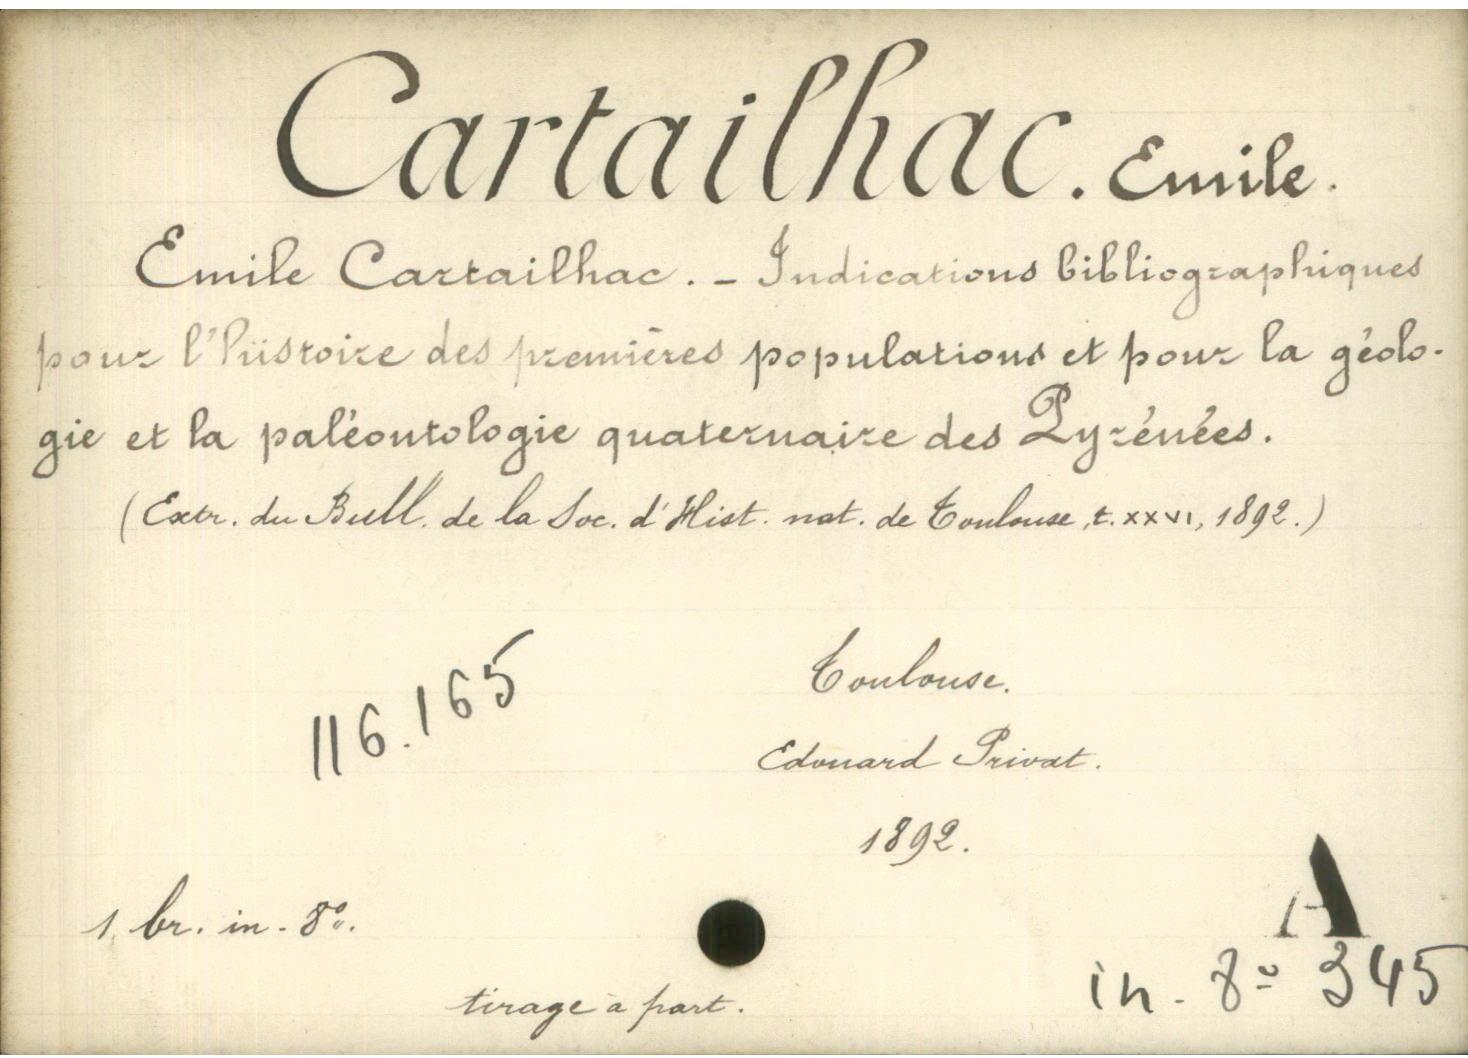 Cartailhac. Emile.
Emile Cartailhac. - Indications bibliographiques
pour l'histoire des premières populations et pour la géolo-
gie et la paléontologie quaternaire des Pyrénées.
(Extr. du Bull. de la Soc. d'Hist. nat. de Toulouse, t. XXVI, 1892.)
116.165
Toulouse.
Edouard Privat.
1892.
1 br. in-8°.
A
in-8° 345
tirage à part.